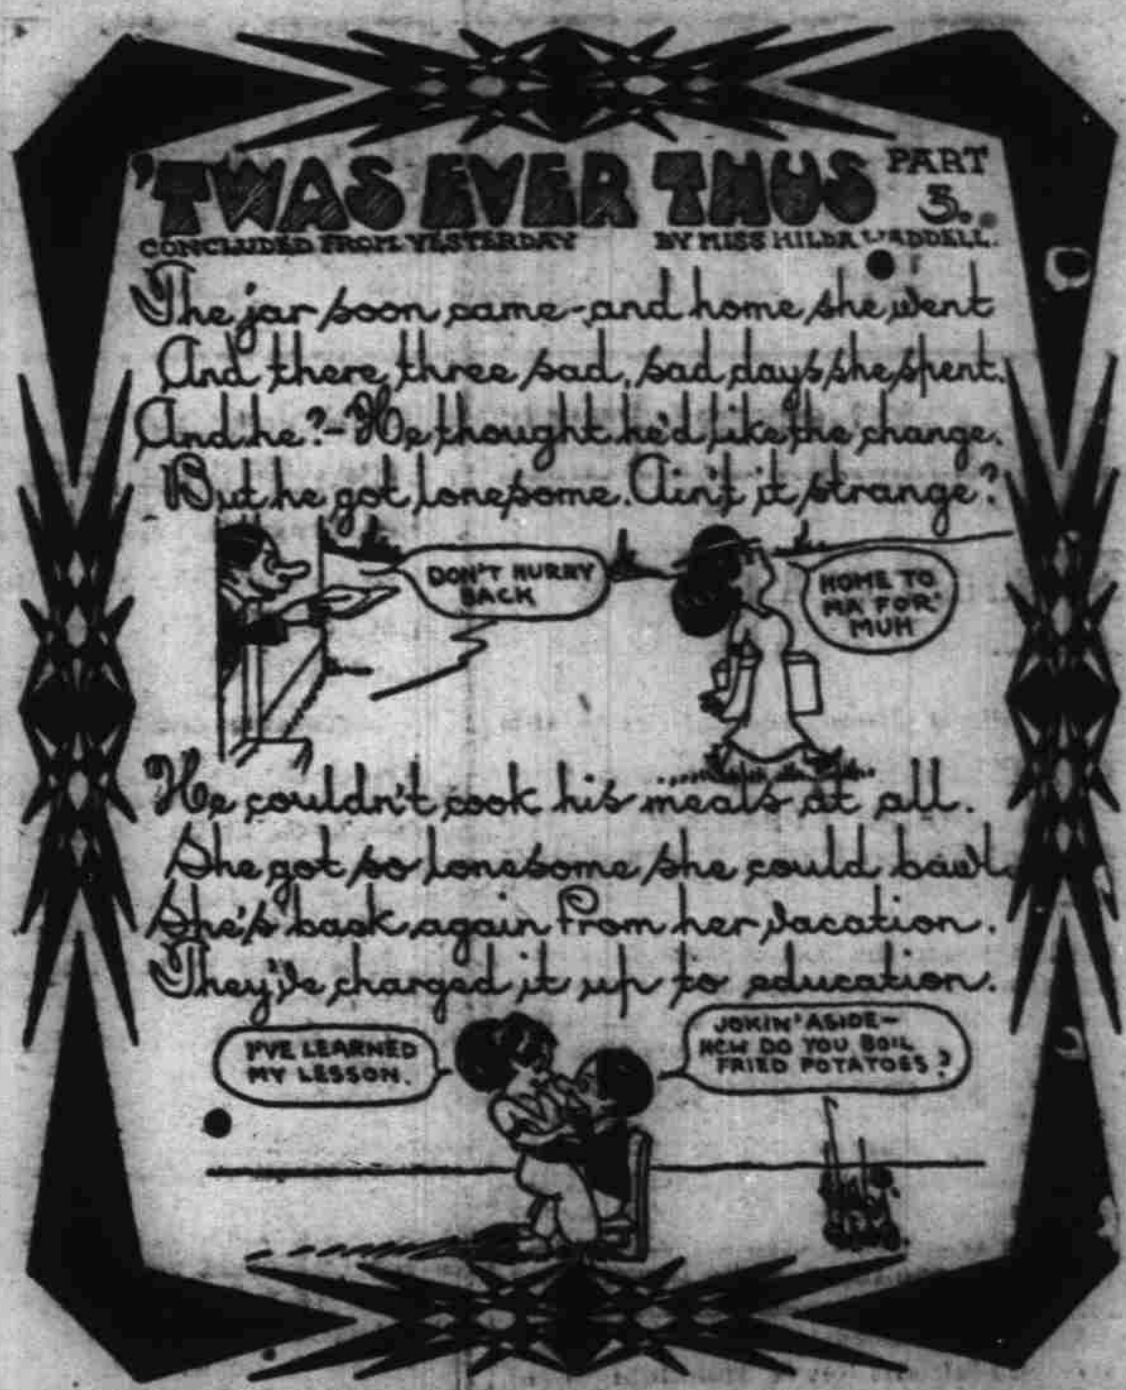 'TWAS EVER THUS PART 3.
CONCLUDED FROM YESTERDAY BY MISS HILDA WADDELL.
The jar soon came - and home she went
And there, three sad, sad days she spent.
And he? - He thought he'd like the change.
But he got lonesome. Ain't it strange?
DON'T HURRY
BACK
HOME TO
MA FOR
MUH
He couldn't cook his meals at all.
She got so lonesome she could bawl.
She's back again from her vacation.
They've charged it up to education.
I'VE LEARNED
MY LESSON.
JOKIN' ASIDE—
HOW DO YOU BOIL
FRIED POTATOES?